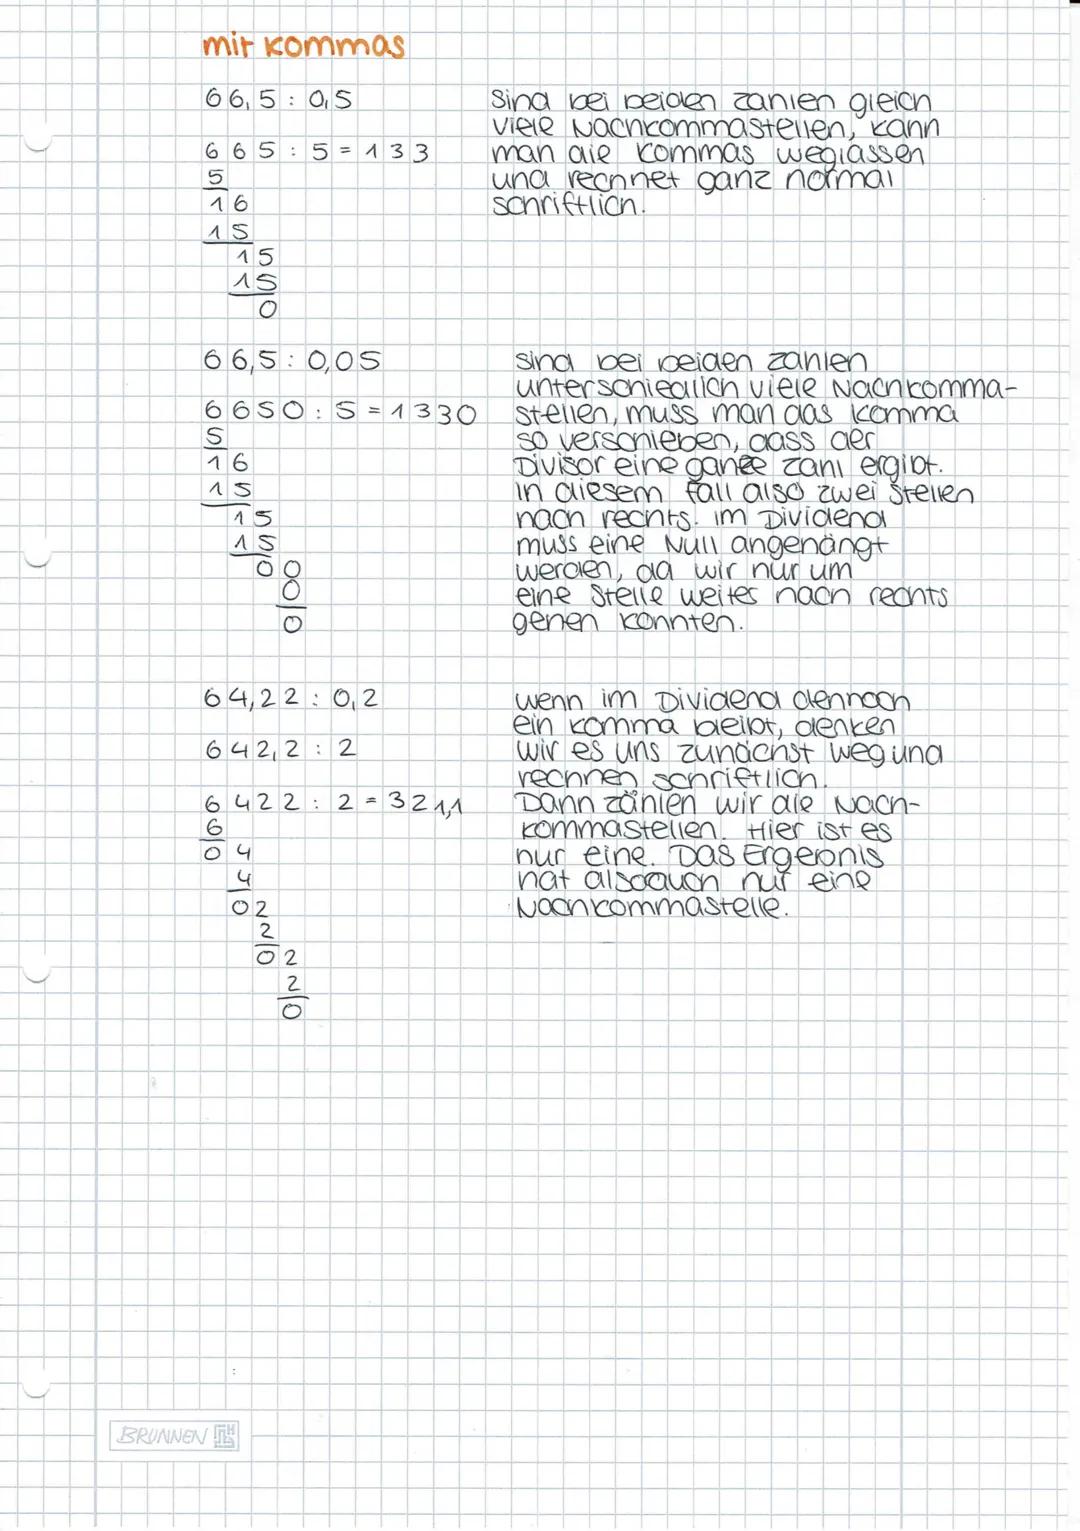 mit Kommas
66,5 : 0,5
Sind bei beiden Zahlen gleich
viele Nachkommastellen, kann
665 : 5 = 133
man die Kommas weglassen
5
und rechnet ganz normal
16
schriftlich.
15
15
15
0
66,5 : 0,05
Sind bei beiden Zahlen
unterschiedlich viele Nachkomma-
6650 : 5 = 1330
stellen, muss man das Komma
5
so verschieben, dass der
16
Divisor eine ganze Zahl ergibt.
15
In diesem Fall also zwei Stellen
15
nach rechts. Im Dividend
15
muss eine Null angehängt
00
werden, da wir nur um
0
eine Stelle weites nach rechts
0
gehen konnten.
64,22 : 0,2
Wenn im Dividend dennoch
ein Komma bleibt, denken
642,2 : 2
wir es uns zunächst weg und
rechnen schriftlich.
6422 : 2 = 321,1
Dann zählen wir die Nach-
6
kommastellen. Hier ist es
04
nur eine. Das Ergebnis
4
hat also auch nur eine
02
Nachkommastelle.
2
02
2
0
BRUNNEN